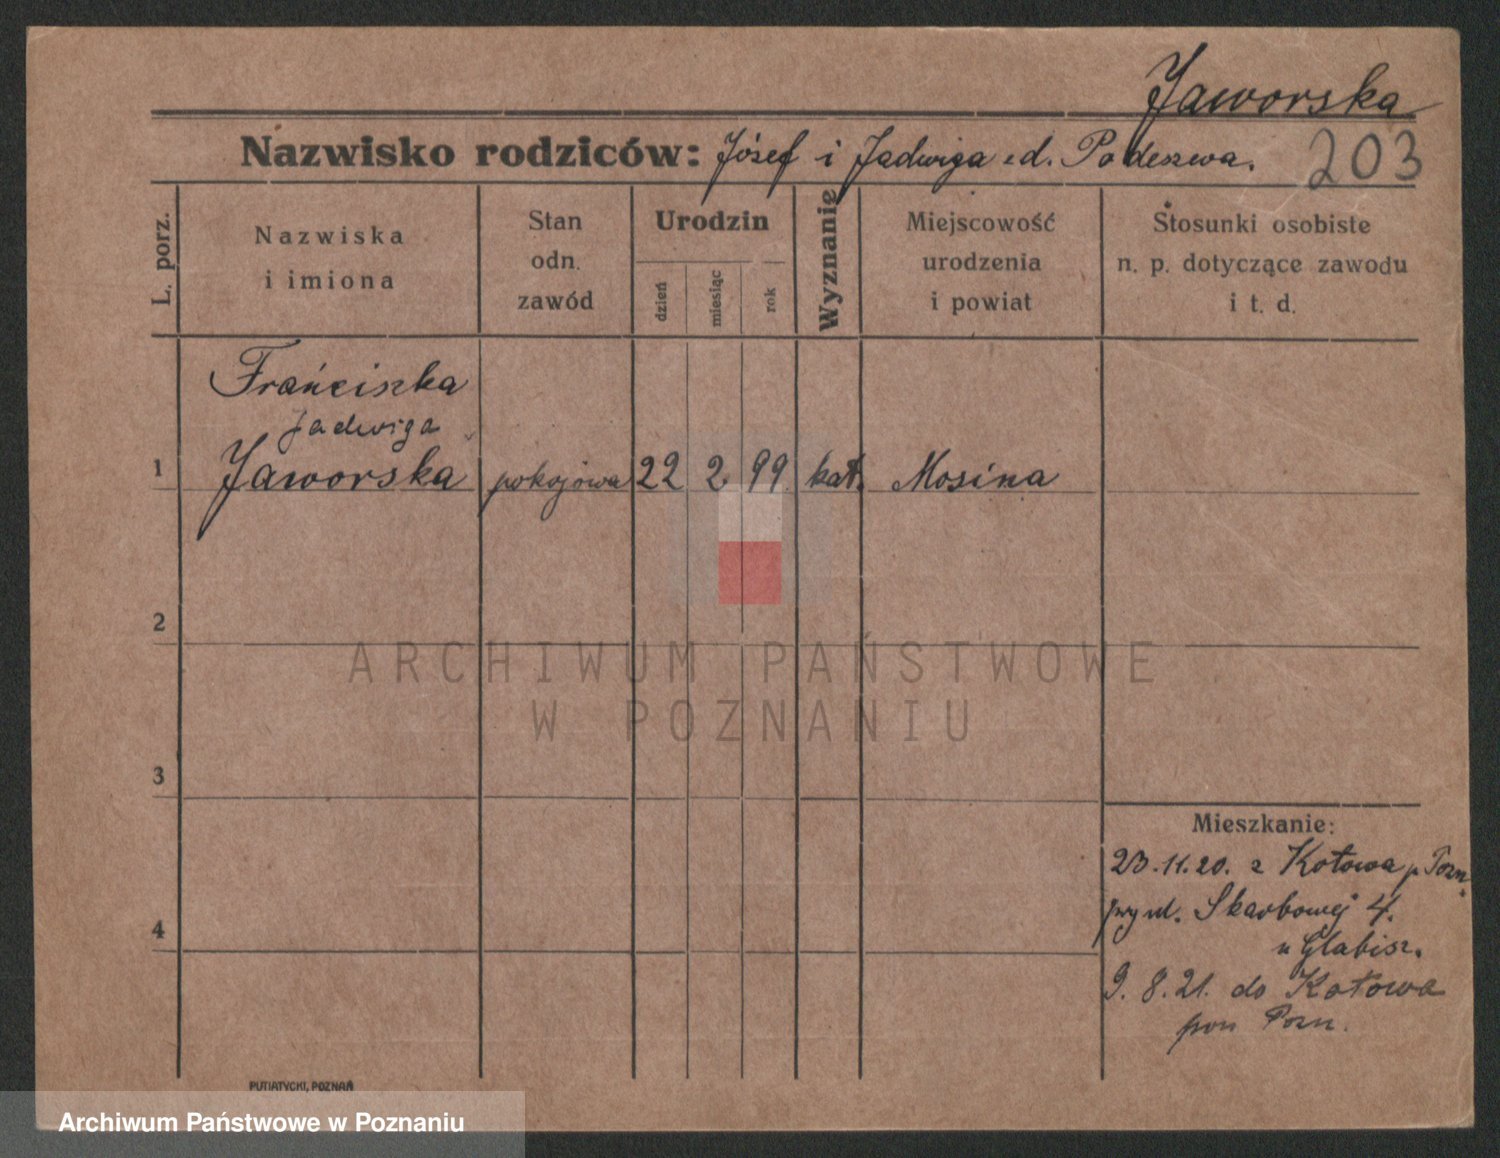 Jaworska
Nazwisko rodziców: Józef i Jadwiga z d. Podeszwa.
203
L. porz.
Nazwiska
i imiona
Stan
odn.
zawód
Urodzin
dzień
miesiąc
rok
Wyznanie
Miejscowość
urodzenia
i powiat
Stosunki osobiste
n. p. dotyczące zawodu
i t. d.
Franciszka
Jadwiga
1 Jaworska pokojowa 22 2. 99 kat. Mosina
2
ARCHIWUM PAŃSTWOWE
W POZNANIU
3
Mieszkanie:
23.11.20. z Kotowa p Pozn.
przy ul. Skarbowej 4.
4
u Glabisz.
9. 8. 21. do Kotowa
pow Pozn.
PUTIATYCKI, POZNAŃ
Archiwum Państwowe w Poznaniu